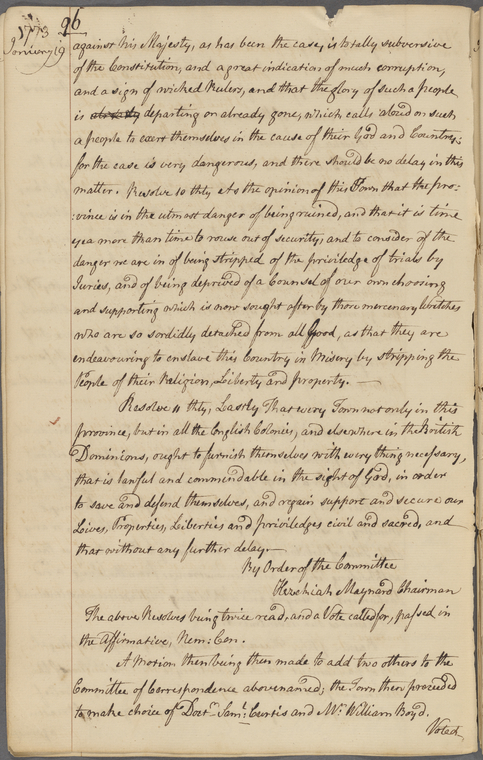 1773 96
January 19
against his Majesty, as has been the case, is totally subversive
of the Constitution, and a great indication of much corruption,
and a sign of wicked Rulers, and that the glory of such a people
is already departing or already gone, which calls aloud on such
a people to exert themselves in the cause of their God and Country;
for the case is very dangerous, and there should be no delay in this
matter. Resolve 10 thly As the opinion of this Town that the pro-
:vince is in the utmost danger of being ruined, and that it is time
yea more than time to rouse out of security, and to consider of the
danger we are in of being stripped of the priviledge of trials by
Juries, and of being deprived of a Counsel of our own choosing
and supporting which is now sought after by those mercenary Wretches
who are so sordidly detached from all Good, as that they are
endeavouring to enslave this Country in Misery by stripping the
People of their Religion, Liberty and property. —
Resolve 11 thly, Lastly That every Town not only in this
province, but in all the English Colonies, and elsewhere in the British
Dominions, ought to furnish themselves with every thing necessary,
that is lawful and commendable in the sight of God, in order
to save and defend themselves, and regain support and secure our
Lives, Properties, Liberties and priviledges civil and sacred, and
that without any further delay.—
By Order of the Committee
Hezekiah Maynard Chairman
The above Resolves being twice read, and a Vote called for, passed in
the Affirmative, Nem: Con.
A Motion then being then made to add two others to the
Committee of Correspondence abovenamed; the Town then proceeded
to make choice of Doctr. Saml. Curtis and Mr. William Boyd.
Voted,